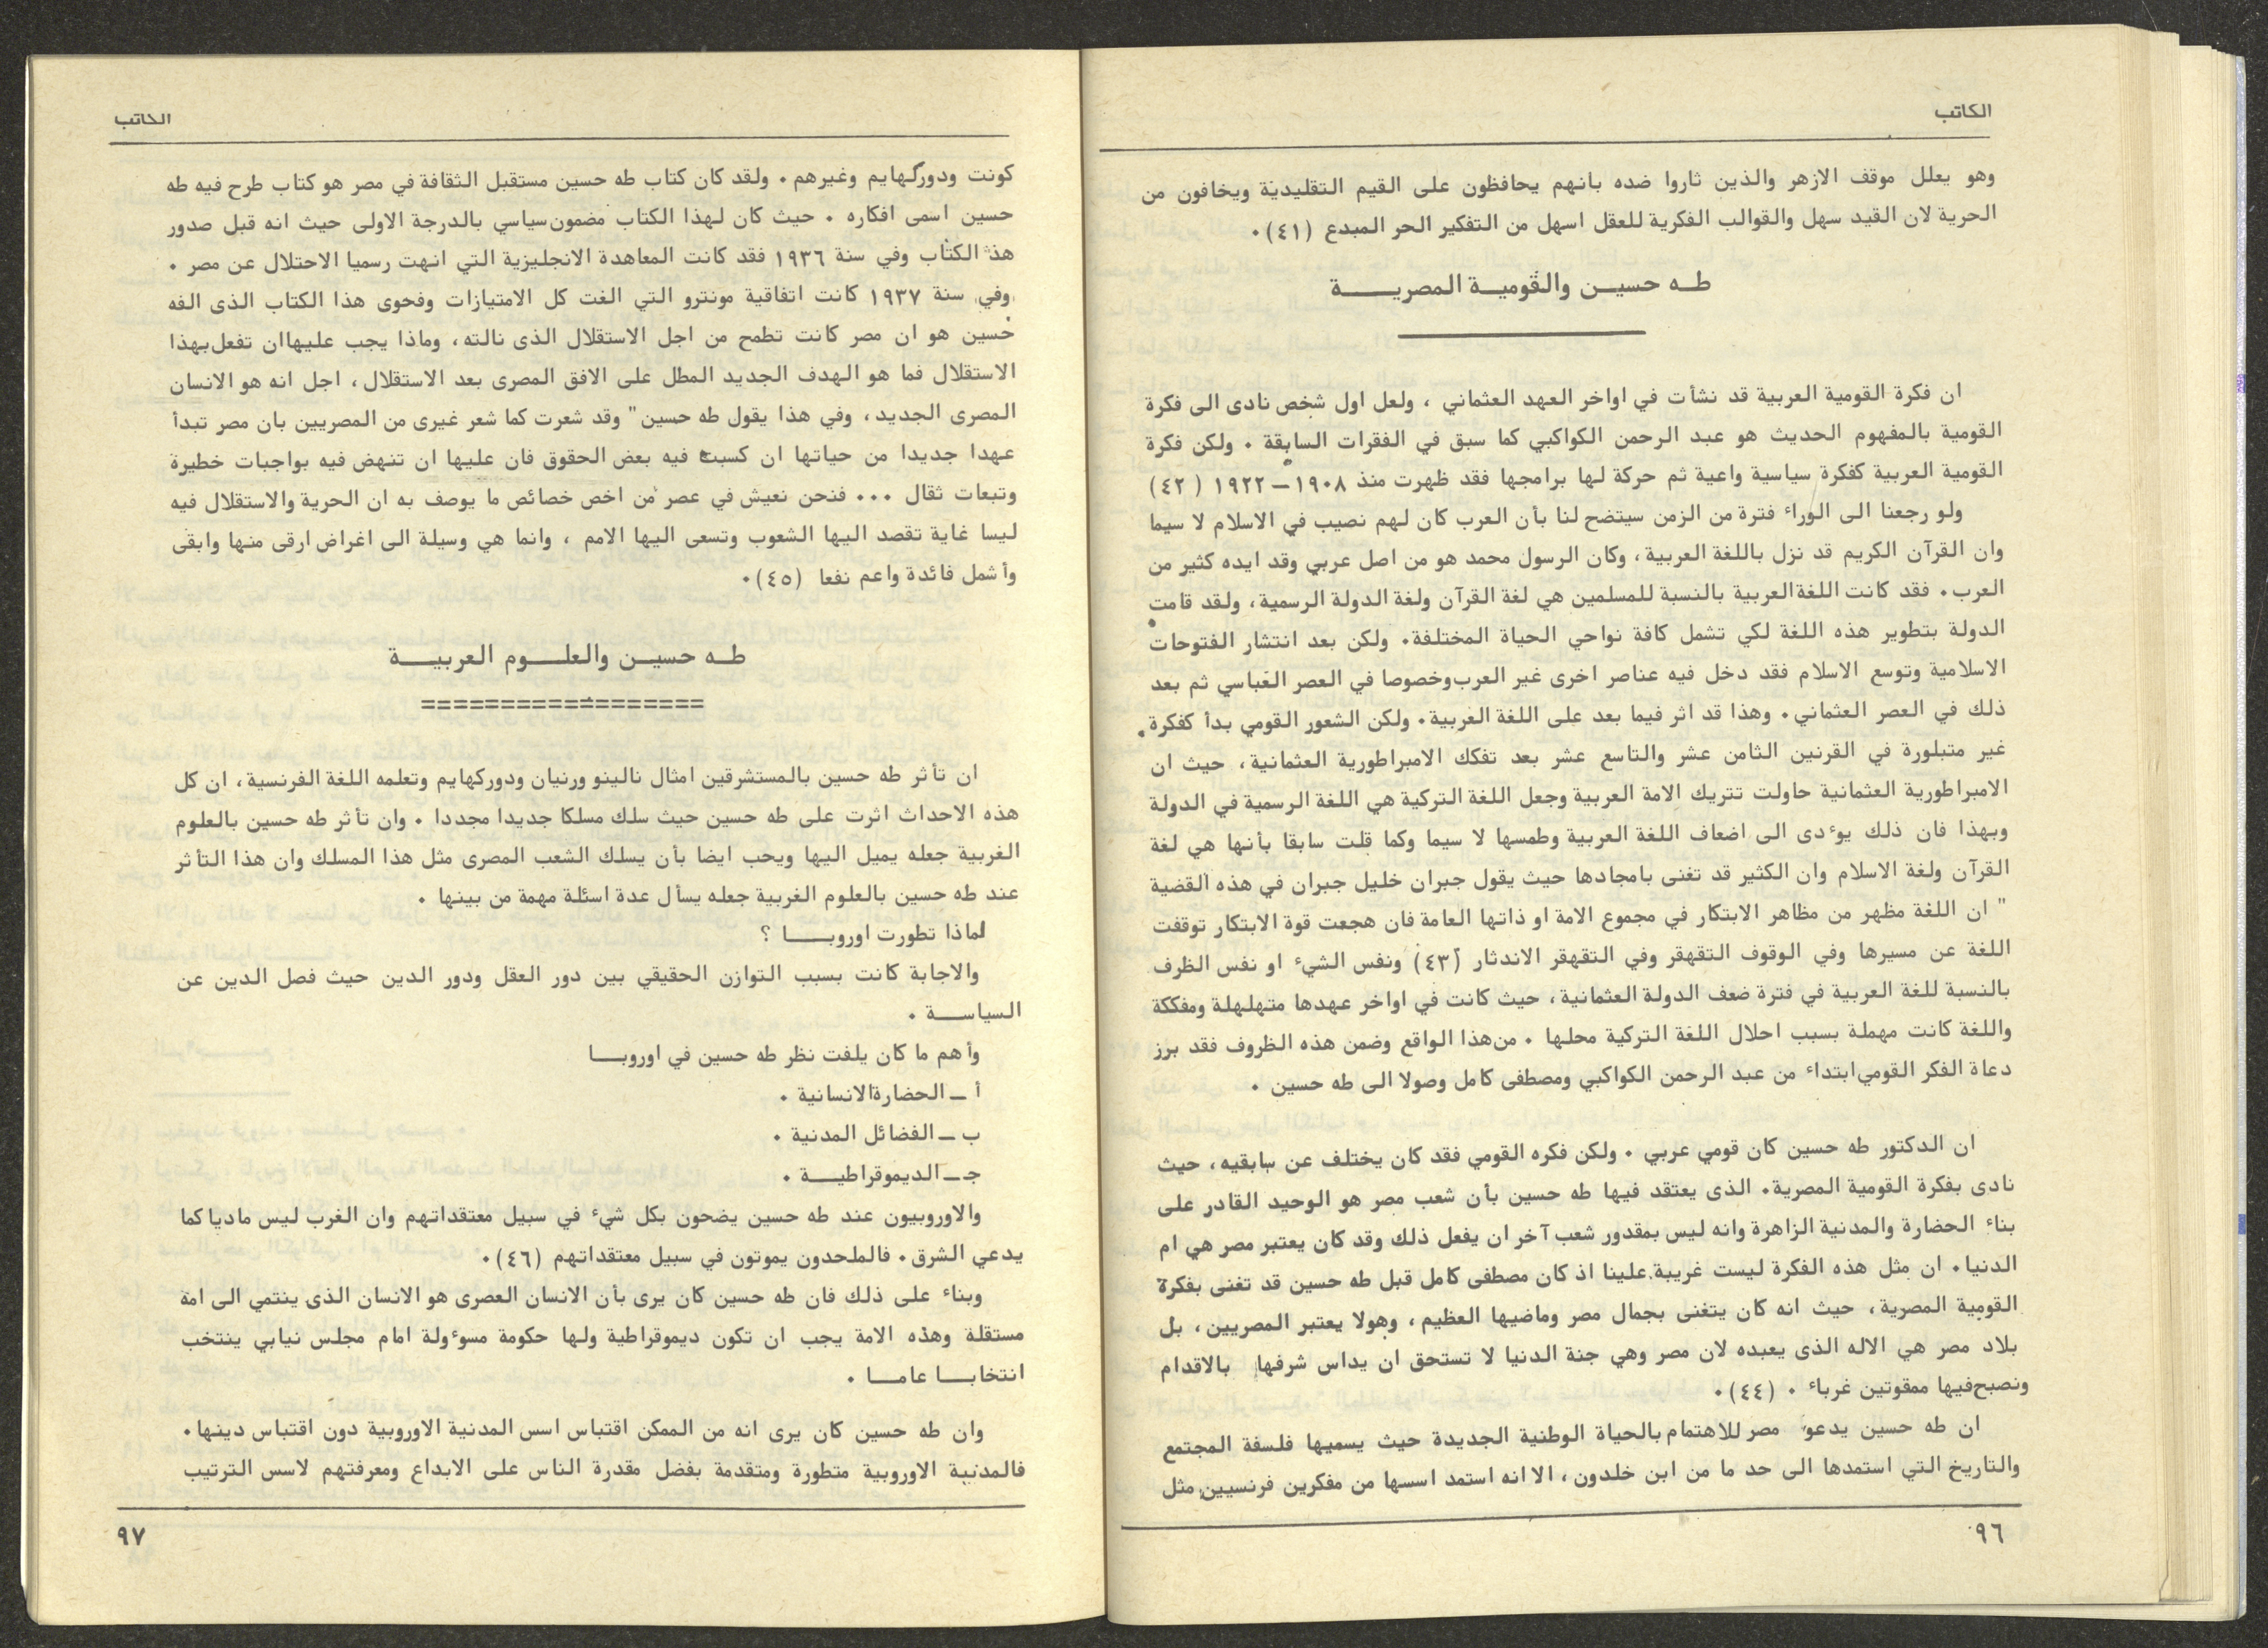 الكاتب
وهو يعلل موقف الازهر والذين ثاروا ضده بانهم يحافظون على القيم التقليدية ويخافون من
الحرية لان القيد سهل والقوالب الفكرية للعقل اسهل من التفكير الحر المبدع (٤١)٠
طـه حسيـن والقوميـة المصريــــة
ان فكرة القومية العربية قد نشأت في اواخر العهد العثماني ، ولعل اول شخص نادى الى فكرة
القومية بالمفهوم الحديث هو عبد الرحمن الكواكبي كما سبق في الفقرات السابقة ٠ ولكن فكرة
القومية العربية كفكرة سياسية واعية ثم حركة لها برامجها فقد ظهرت منذ ١٩٠٨ـ ١٩٢٢ (٤٢)
ولو رجعنا الى الوراء فترة من الزمن سيتضح لنا بأن العرب كان لهم نصيب في الاسلام لا سيما
وان القرآن الكريم قد نزل باللغة العربية، وكان الرسول محمد هو من اصل عربي وقد ايده كثير من
العرب٠ فقد كانت اللغة العربية بالنسبة للمسلمين هي لغة القرآن ولغة الدولة الرسمية، ولقد قامت
الدولة بتطوير هذه اللغة لكي تشمل كافة نواحي الحياة المختلفة٠ ولكن بعد انتشار الفتوحات
الاسلامية وتوسع الاسلام فقد دخل فيه عناصر اخرى غير العرب وخصوصا في العصر العباسي ثم بعد
ذلك في العصر العثماني٠ وهذا قد اثر فيما بعد على اللغة العربية٠ ولكن الشعور القومي بدأ كفكرة
غير متبلورة في القرنين الثامن عشر والتاسع عشر بعد تفكك الامبراطورية العثمانية، حيث ان
الامبراطورية العثمانية حاولت تتريك الامة العربية وجعل اللغة التركية هي اللغة الرسمية في الدولة
وبهذا فان ذلك يوءدى الى اضعاف اللغة العربية وطمسها لا سيما وكما قلت سابقا بأنها هي لغة
القرآن ولغة الاسلام وان الكثير قد تغنى بامجادها حيث يقول جبران خليل جبران في هذه القضية
" ان اللغة مظهر من مظاهر الابتكار في مجموع الامة او ذاتها العامة فان هجعت قوة الابتكار توقفت
اللغة عن مسيرها وفي الوقوف التقهقر وفي التقهقر الاندثار (٤٣) ونفس الشيء او نفس الظرف
بالنسبة للغة العربية في فترة ضعف الدولة العثمانية، حيث كانت في اواخر عهدها متهلهلة ومفككة
واللغة كانت مهملة بسبب احلال اللغة التركية محلها ٠ من هذا الواقع وضمن هذه الظروف فقد برز
دعاة الفكر القومي ابتداء من عبد الرحمن الكواكبي ومصطفى كامل وصولا الى طه حسين ٠
ان الدكتور طه حسين كان قومي عربي ٠ ولكن فكره القومي فقد كان يختلف عن سابقيه، حيث
نادى بفكرة القومية المصرية٠ الذى يعتقد فيها طه حسين بأن شعب مصر هو الوحيد القادر على
بناء الحضارة والمدنية الزاهرة وانه ليس بمقدور شعب آخر ان يفعل ذلك وقد كان يعتبر مصر هي ام
الدنيا٠ ان مثل هذه الفكرة ليست غريبة علينا اذ كان مصطفى كامل قبل طه حسين قد تغنى بفكرة
القومية المصرية، حيث انه كان يتغنى بجمال مصر وماضيها العظيم، وهولا يعتبر المصريين، بل
بلاد مصر هي الاله الذى يعبده لان مصر وهي جنة الدنيا لا تستحق ان يداس شرفها بالاقدام
ونصبح فيها ممقوتين غرباء ٠ (٤٤)٠
ان طه حسين يدعو مصر للاهتمام بالحياة الوطنية الجديدة حيث يسميها فلسفة المجتمع
والتاريخ التي استمدها الى حد ما من ابن خلدون، الا انه استمد اسسها من مفكرين فرنسيين مثل
٩٦
الكاتب
كونت ودوركهايم وغيرهم٠ ولقد كان كتاب طه حسين مستقبل الثقافة في مصر هو كتاب طرح فيه طه
حسين اسمى افكاره ٠ حيث كان لهذا الكتاب مضمون سياسي بالدرجة الاولى حيث انه قبل صدور
هذا الكتاب وفي سنة ١٩٣٦ فقد كانت المعاهدة الانجليزية التي انهت رسميا الاحتلال عن مصر ٠
وفي سنة ١٩٣٧ كانت اتفاقية مونترو التي الغت كل الامتيازات وفحوى هذا الكتاب الذى الفه
حسين هو ان مصر كانت تطمح من اجل الاستقلال الذى نالته، وماذا يجب عليها ان تفعل بهذا
الاستقلال فما هو الهدف الجديد المطل على الافق المصرى بعد الاستقلال، اجل انه هو الانسان
المصرى الجديد، وفي هذا يقول طه حسين" وقد شعرت كما شعر غيرى من المصريين بان مصر تبدأ
عهدا جديدا من حياتها ان كسبت فيه بعض الحقوق فان عليها ان تنهض فيه بواجبات خطيرة
وتبعات ثقال ٠٠٠ فنحن نعيش في عصر من اخص خصائص ما يوصف به ان الحرية والاستقلال فيه
ليسا غاية تقصد اليها الشعوب وتسعى اليها الامم ، وانما هي وسيلة الى اغراض ارقى منها وابقى
وأشمل فائدة واعم نفعا (٤٥)٠
طـه حسيـن والعلــوم العربيــة
==================
ان تأثر طه حسين بالمستشرقين امثال نالينو ورنيان ودوركهايم وتعلمه اللغة الفرنسية، ان كل
هذه الاحداث اثرت على طه حسين حيث سلك مسلكا جديدا مجددا ٠ وان تأثر طه حسين بالعلوم
الغربية جعله يميل اليها ويحب ايضا بأن يسلك الشعب المصرى مثل هذا المسلك وان هذا التأثر
عند طه حسين بالعلوم الغربية جعله يسأل عدة اسئلة مهمة من بينها ٠
لماذا تطورت اوروبــــا ؟
والاجابة كانت بسبب التوازن الحقيقي بين دور العقل ودور الدين حيث فصل الدين عن
السياســـة ٠
وأهم ما كان يلفت نظر طه حسين في اوروبــا
أ ـ الحضارة الانسانية ٠
ب ـ الفضائل المدنية ٠
جـ ـ الديموقراطيـــة ٠
والاوروبيون عند طه حسين يضحون بكل شيء في سبيل معتقداتهم وان الغرب ليس ماديا كما
يدعي الشرق٠ فالملحدون يموتون في سبيل معتقداتهم (٤٦)٠
وبناء على ذلك فان طه حسين كان يرى بأن الانسان العصرى هو الانسان الذى ينتمي الى امة
مستقلة وهذه الامة يجب ان تكون ديموقراطية ولها حكومة مسوءولة امام مجلس نيابي ينتخب
انتخابـــا عامـــا ٠
وان طه حسين كان يرى انه من الممكن اقتباس اسس المدنية الاوروبية دون اقتباس دينها٠
فالمدنية الاوروبية متطورة ومتقدمة بفضل مقدرة الناس على الابداع ومعرفتهم لاسس الترتيب
٩٧